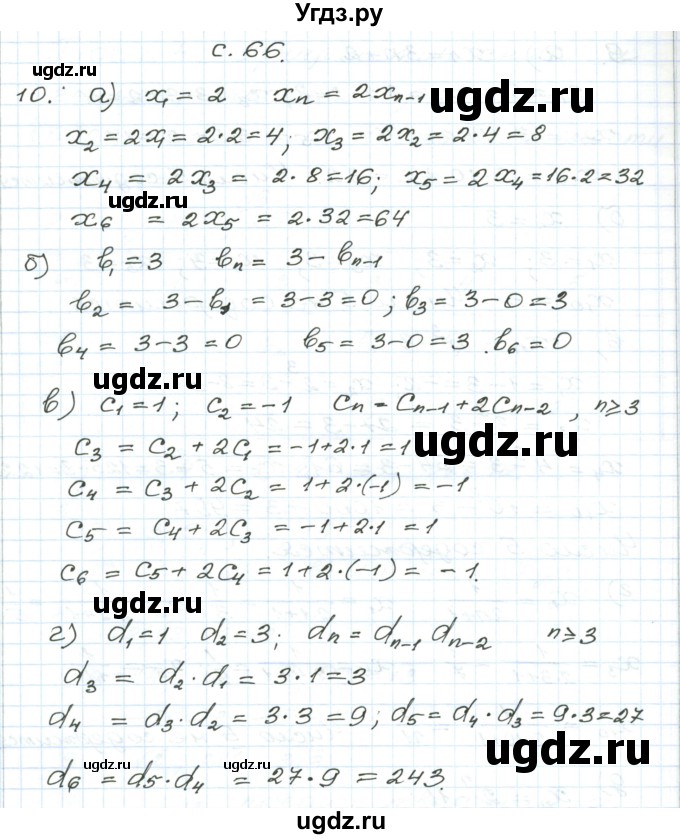 Угдз.ру
с. 66.
ugdz.ru
10. а) x₁ = 2 xₙ = 2xₙ₋₁
ugdz.ru
x₂ = 2x₁ = 2·2 = 4; x₃ = 2x₂ = 2·4 = 8
x₄ = 2x₃ = 2·8 = 16; x₅ = 2x₄ = 16·2 = 32
ugdz.ru
x₆ = 2x₅ = 2·32 = 64
б) b₁ = 3 bₙ = 3 − bₙ₋₁
b₂ = 3 − b₁ = 3 − 3 = 0; b₃ = 3 − 0 = 3
b₄ = 3 − 3 = 0 b₅ = 3 − 0 = 3. b₆ = 0
ugdz.ru
в) c₁ = 1; c₂ = −1 cₙ = cₙ₋₁ + 2cₙ₋₂, n ≥ 3
c₃ = c₂ + 2c₁ = −1 + 2·1 = 1
ugdz.ru
c₄ = c₃ + 2c₂ = 1 + 2·(−1) = −1
c₅ = c₄ + 2c₃ = −1 + 2·1 = 1
c₆ = c₅ + 2c₄ = 1 + 2·(−1) = −1.
ugdz.ru
г) d₁ = 1 d₂ = 3; dₙ = dₙ₋₁ dₙ₋₂ n ≥ 3
d₃ = d₂·d₁ = 3·1 = 3
d₄ = d₃·d₂ = 3·3 = 9; d₅ = d₄·d₃ = 9·3 = 27
ugdz.ru
ugdz.ru ugdz.ru
d₆ = d₅·d₄ = 27·9 = 243.
Угдз.ру